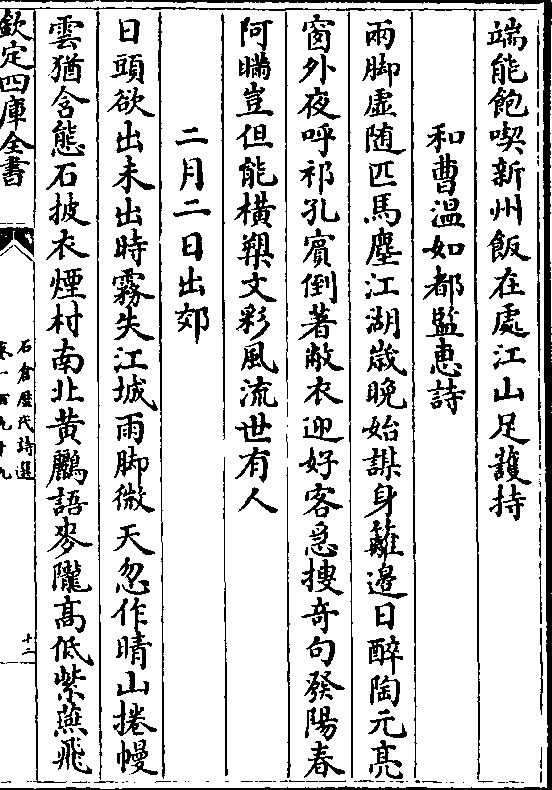 端能飽喫新州飯在處江山足䕶持
和曹溫如都監惠詩
兩脚虛随匹馬塵江湖歲晚始謀身籬邉日醉陶元亮
窗外夜呼祁孔賓倒著敝衣迎好客急搜竒句發陽春
阿瞞豈但能橫槊文彩風流世有人
二月二日出郊
日頭欲出未出時霧失江城雨脚微天忽作晴山捲幔
雲猶含態石披衣煙村南北黃鸝語麥隴髙低紫燕飛
欽定四庫全書
石倉歷代詩選
卷一百九十九
十二